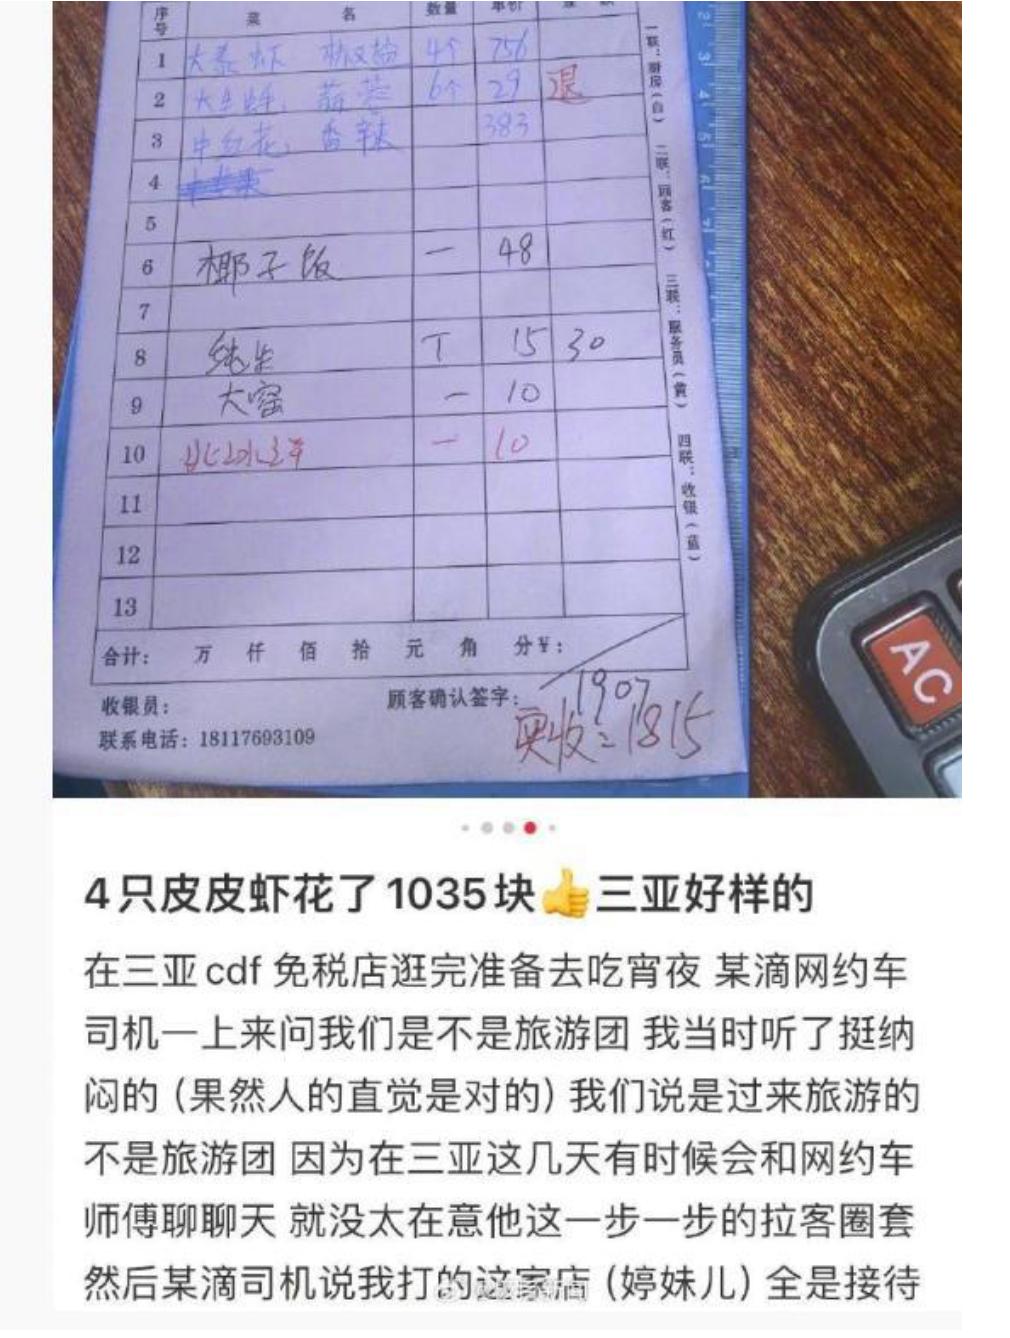 序号 菜 名 数量 单价
1 大泰虾 椒盐 4个 756
2 大生蚝 蒜蓉 6个 29 退
3 中红花 香辣 383
4
5
6 椰子饭 一 48
7
8 纯生 T 15 30
9 大窑 一 10
10 一 10
11
12
13
合计: 万 仟 佰 拾 元 角 分¥:
收银员: 顾客确认签字:
1907
联系电话: 18117693109
实收=1815
一联:厨房(白) 二联:顾客(红) 三联:服务员(黄) 四联:收银(蓝)
2 3 4 5 6 7
AC
4只皮皮虾花了1035块👍三亚好样的
在三亚cdf 免税店逛完准备去吃宵夜 某滴网约车
司机一上来问我们是不是旅游团 我当时听了挺纳
闷的 (果然人的直觉是对的) 我们说是过来旅游的
不是旅游团 因为在三亚这几天有时候会和网约车
师傅聊聊天 就没太在意他这一步一步的拉客圈套
然后某滴司机说我打的这家店 (婷妹儿) 全是接待